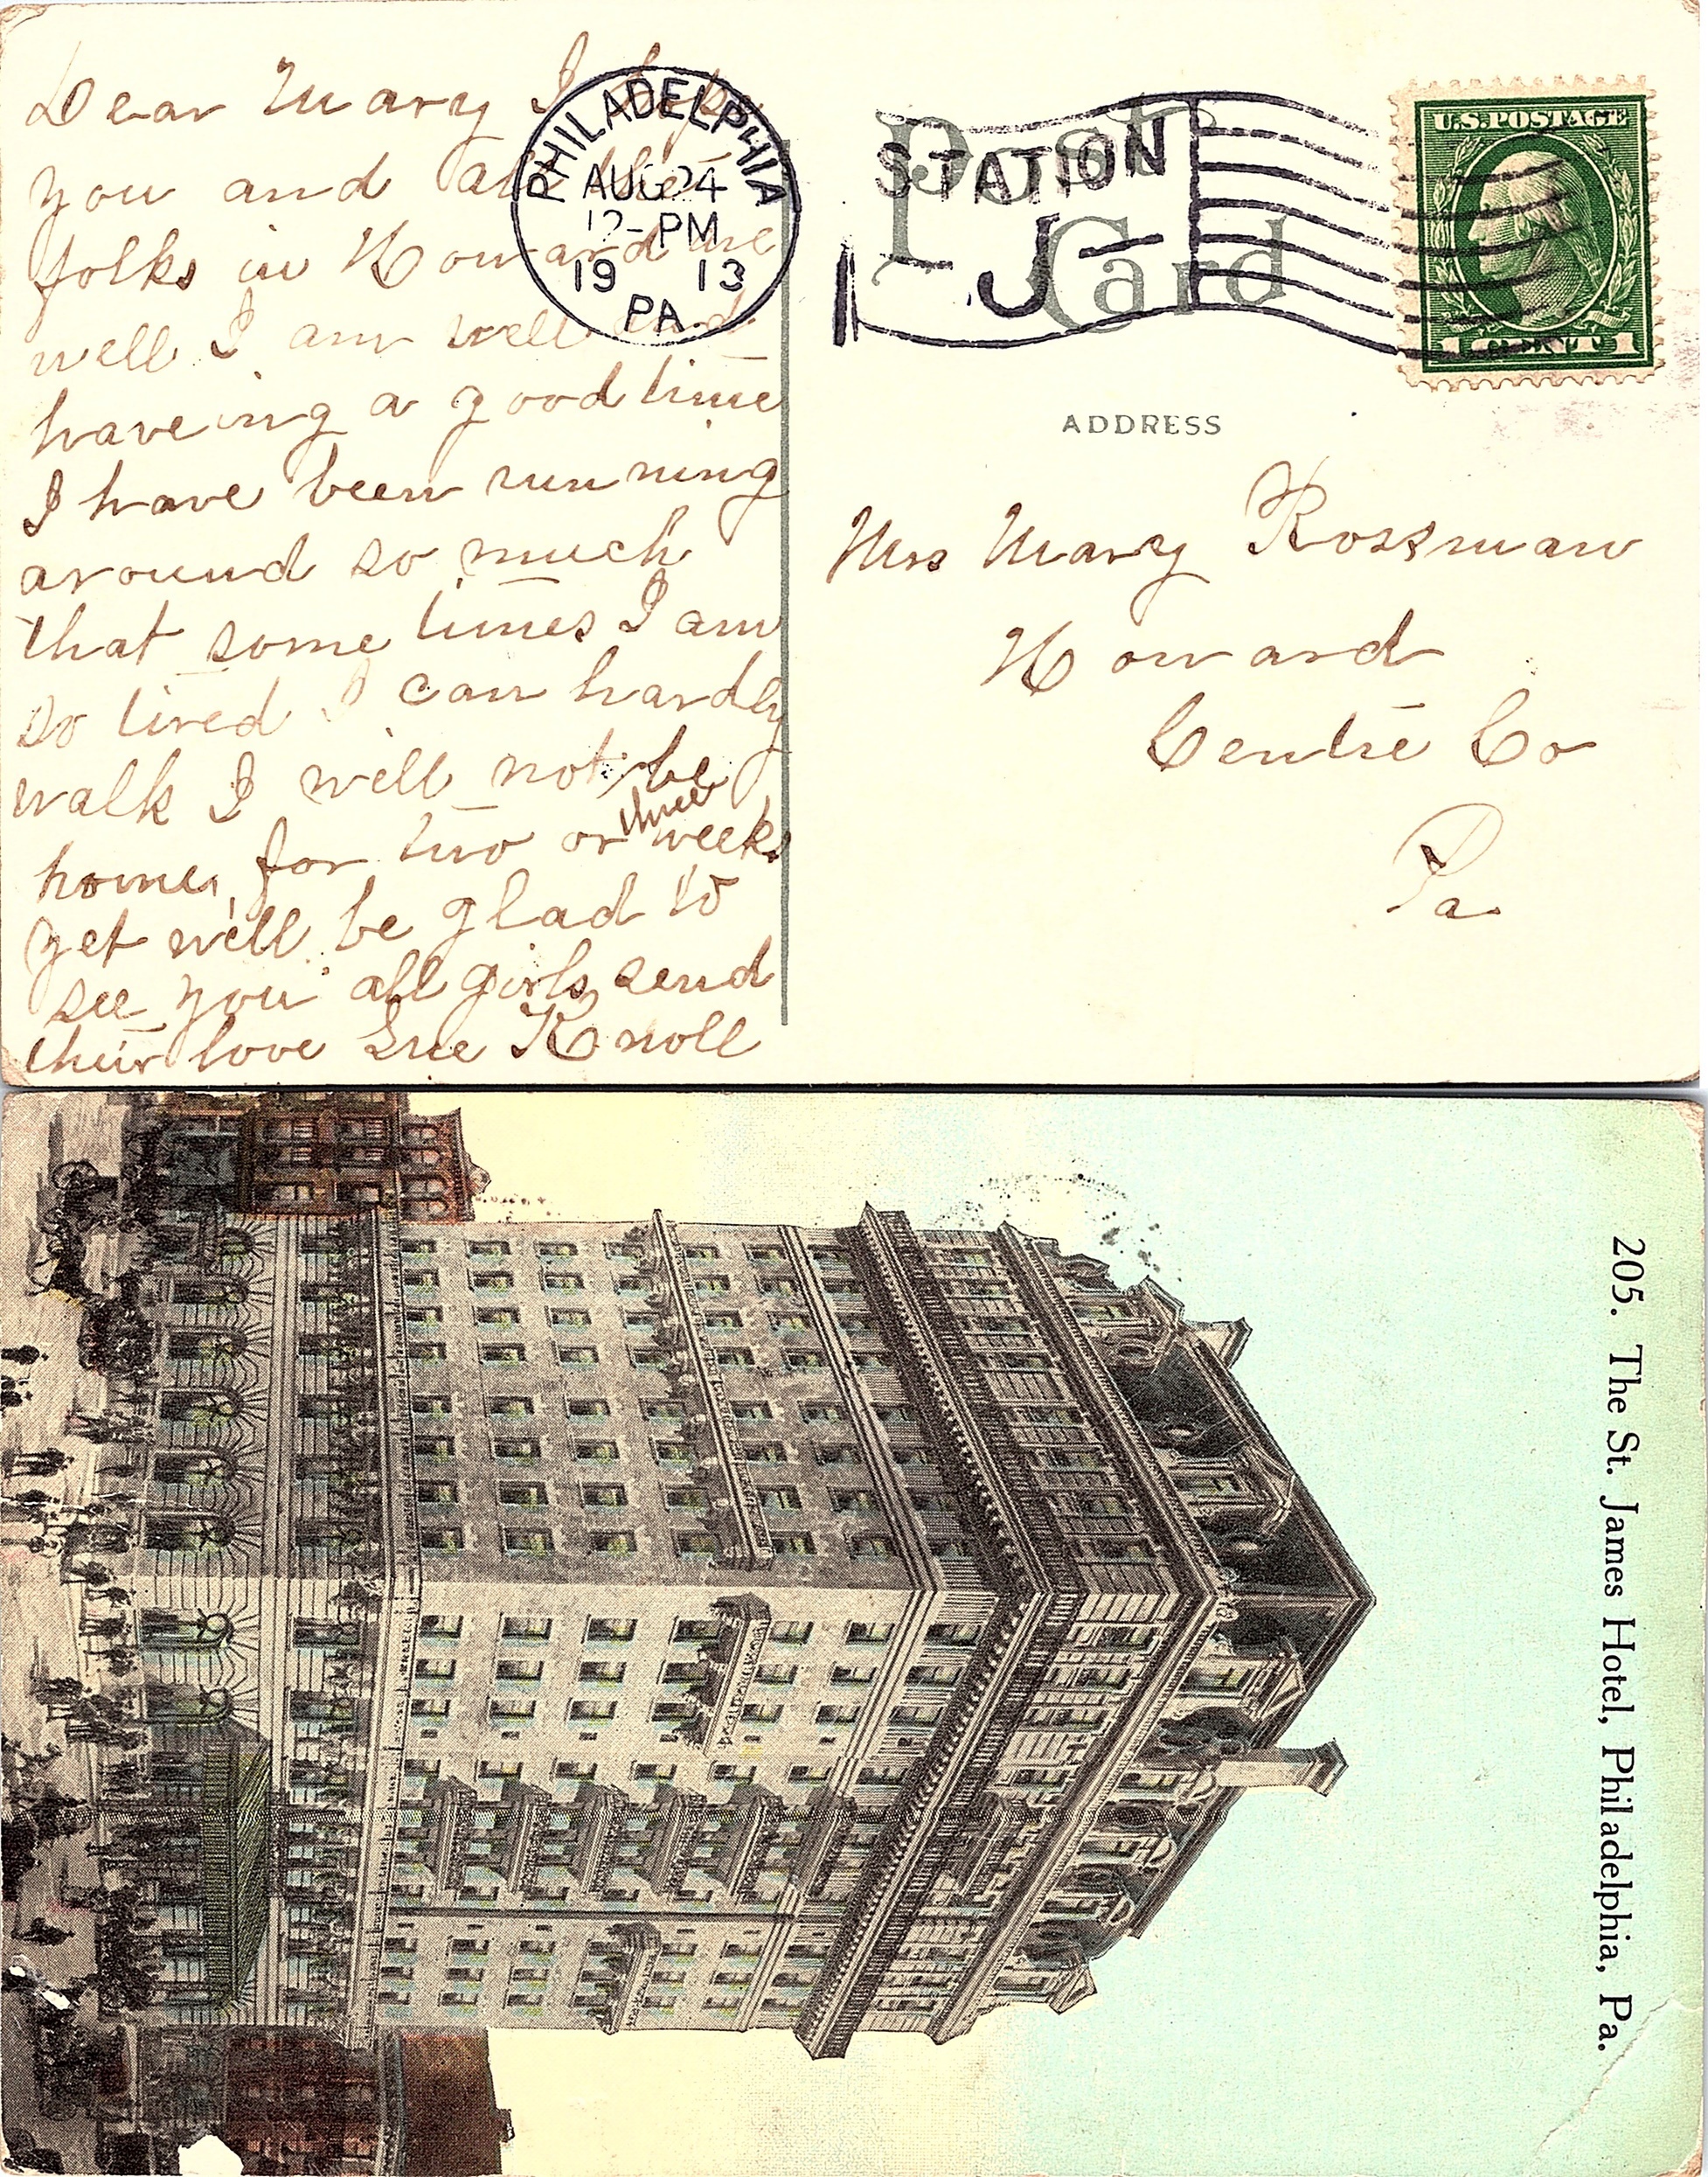 Dear Mary I hope
you and all the
folks in Howard are
well I am well and
haveing a good time
I have been running
around so much
that some times I am
so tired I can hardly
walk I will not be
home for two or three weeks
yet will be glad to
see you all girls send
their love Sue Knoll
PHILADELPHIA
AUG 24
12-PM
19 13
PA.
Post Card
STATION
J
U.S. POSTAGE
1 CENT 1
ADDRESS
Mrs Mary Rossman
Howard
Centre Co
Pa
205. The St. James Hotel, Philadelphia, Pa.